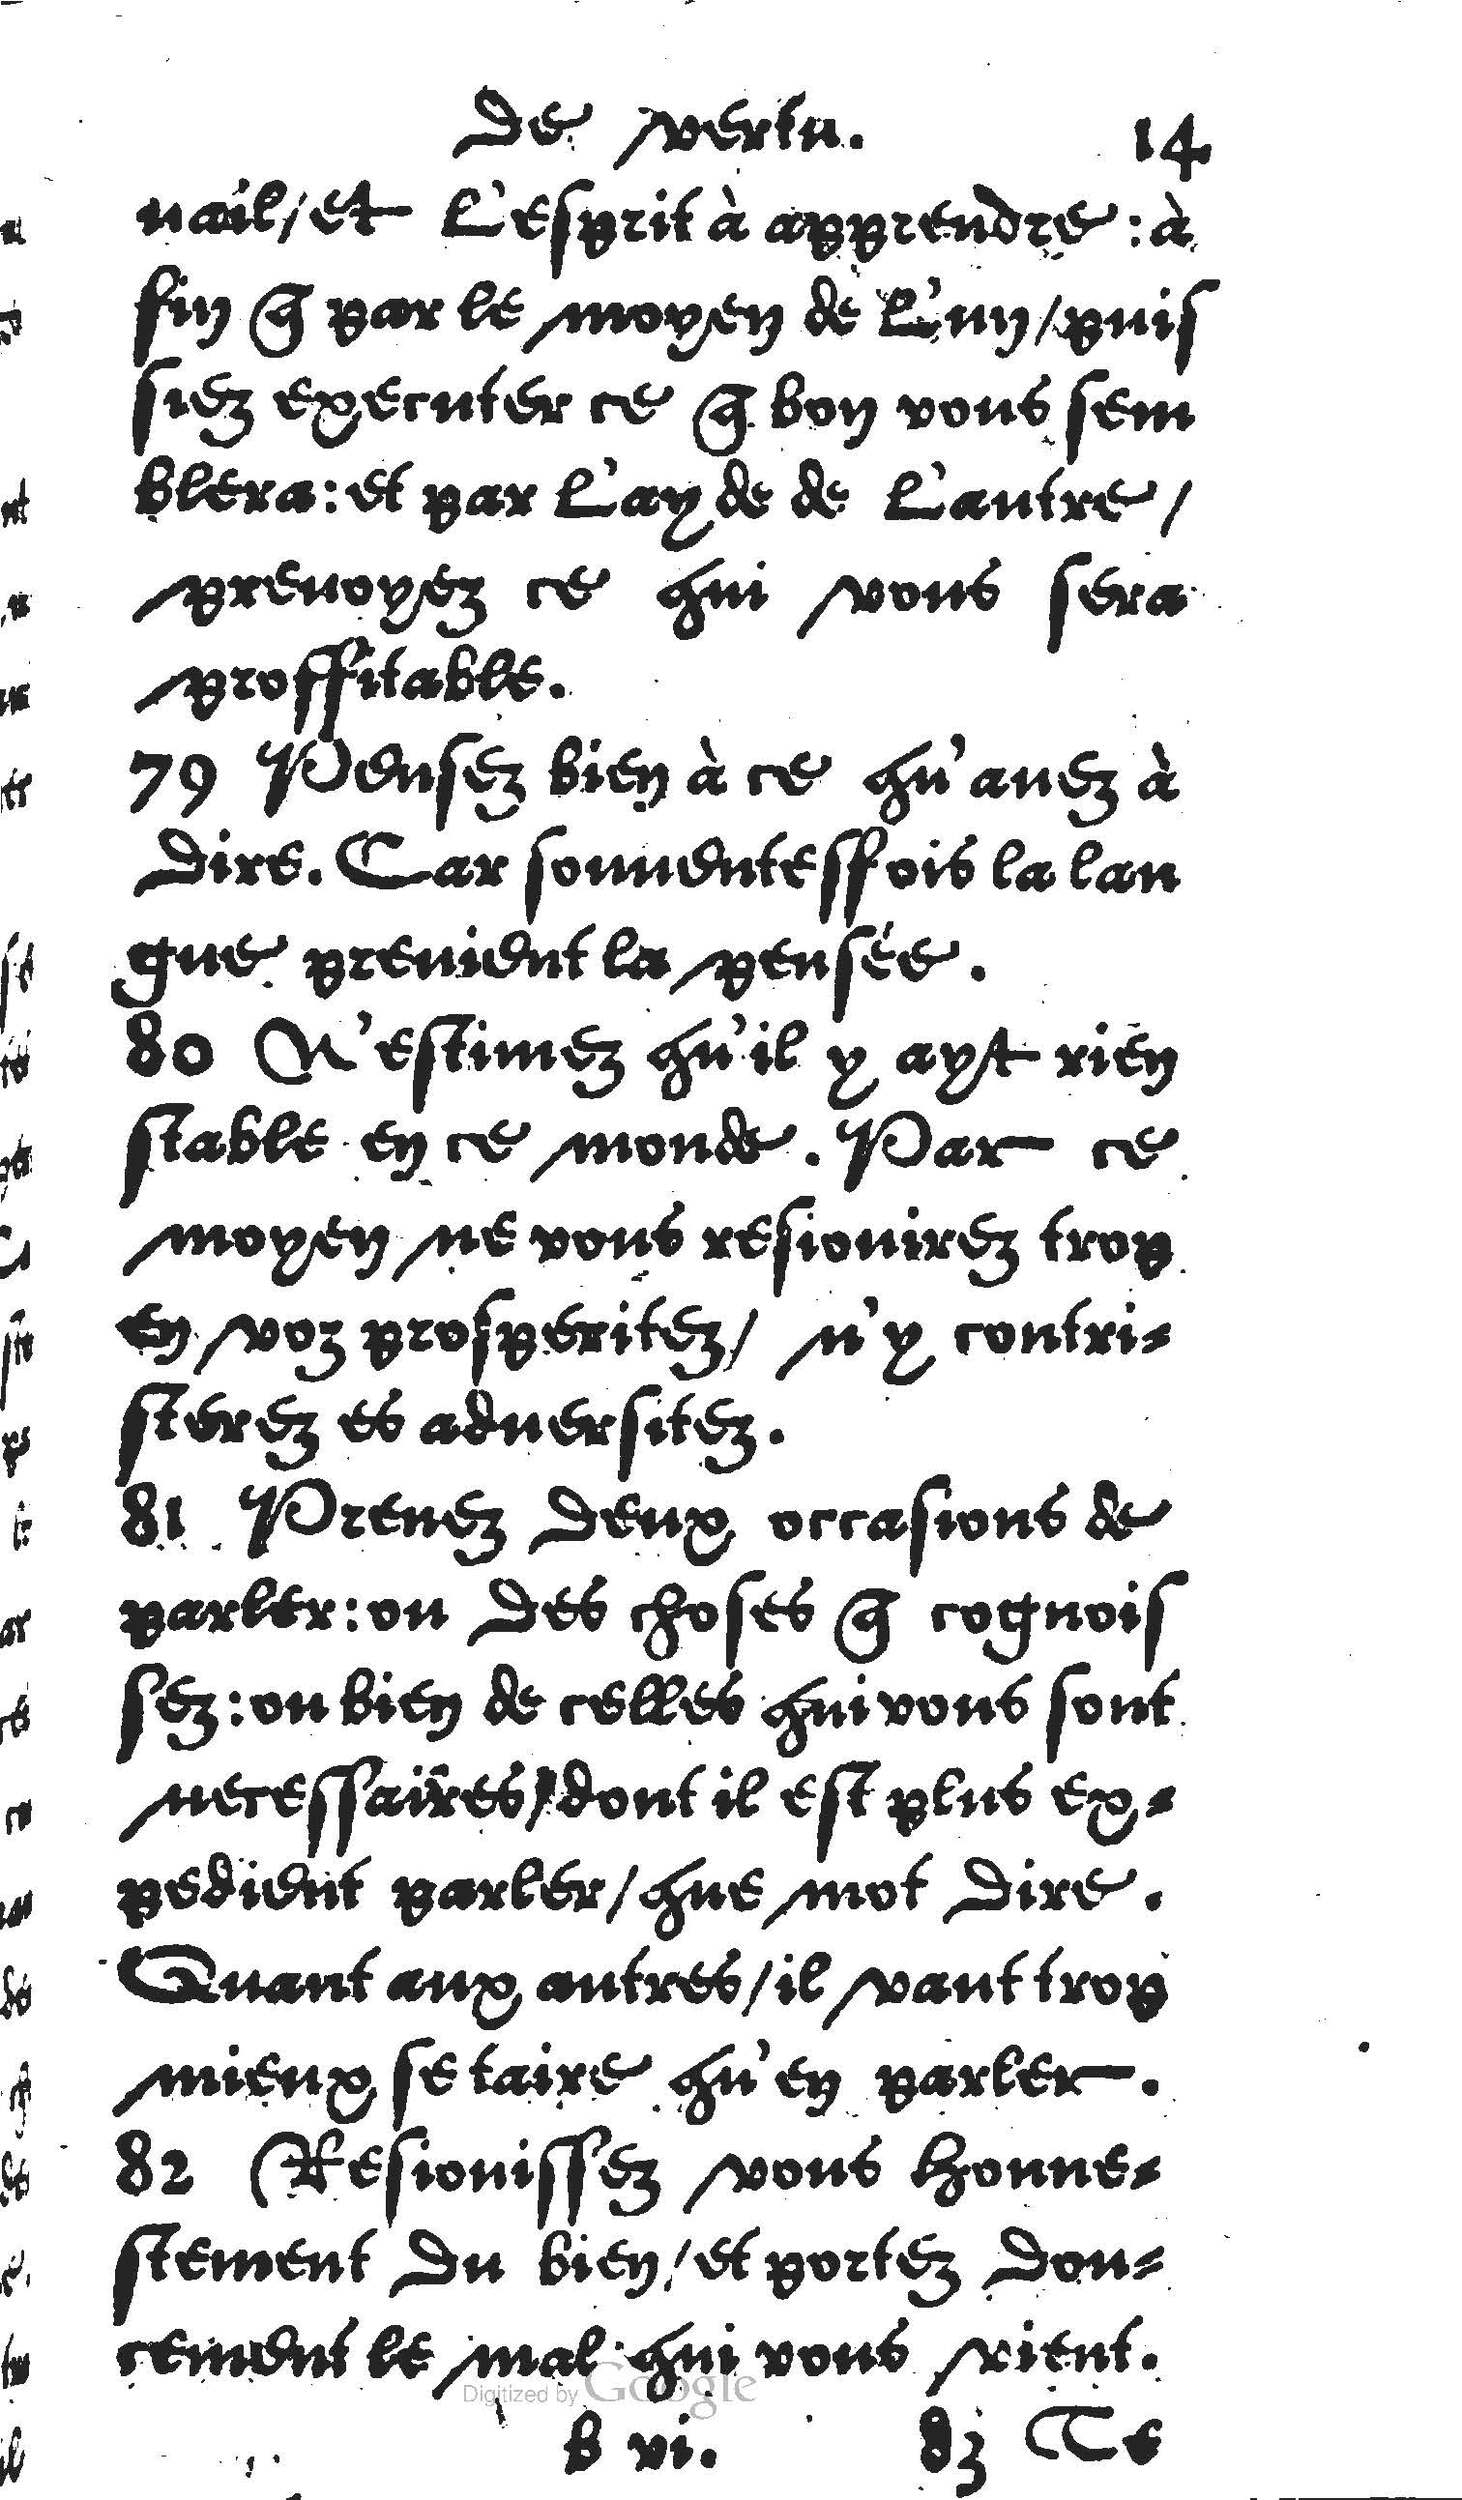 De vertu. 14
nail/et L'esprit à apprendre : à
fin q̃ par le moyen de L'un/puis
siez executer ce q̃ bon vous sem
blera: et par L'ayde de L'autre/
preuoyez ce qui vous sera
proffitable.
79 Pensez bien à ce qu'auez à
dire. Car souuentesfois la lan
gue preuient la pensée.
80 N'estimez qu'il y ayt rien
stable en ce monde. Par ce
moyen ne vous resiouirez trop
en voz prosperitez/ n'y contri-
sterez es aduersitez.
81 Prenez deux occasions de
parler: ou des choses q̃ cognois
sez: ou bien de celles qui vous sont
necessaires/dont il est plus ex-
pedient parler/que mot dire.
Quant aux autres/il vaut trop
mieux se taire qu'en parler.
82 Resiouissez vous honne-
stement du bien/et portez dou-
cement le mal qui vous vient.
Digitized by Google
b vi. 83 Ce